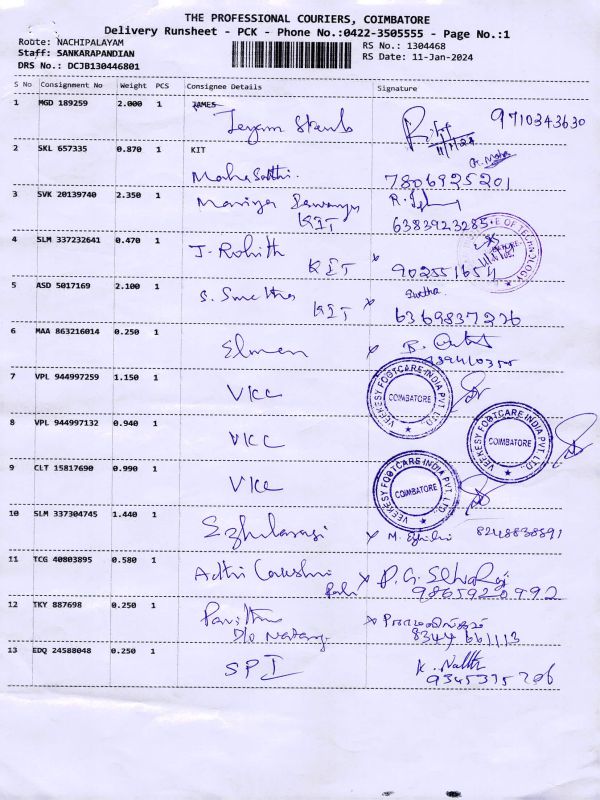 THE PROFESSIONAL COURIERS, COIMBATORE
Delivery Runsheet - PCK - Phone No.:0422-3505555 - Page No.:1
Route: NACHIPALAYAM
Staff: SANKARAPANDIAN
DRS No.: DCJB130446801
RS No.: 1304468
RS Date: 11-Jan-2024
S No Consignment No Weight PCS Consignee Details Signature
1 MGD 189259 2.000 1 JAMES
9710343630
2 SKL 657335 0.870 1 KIT
7806925201
3 SVK 20139740 2.350 1
KIT 6383923285
4 SLM 337232641 0.470 1 J. Rohith
KIT
5 ASD 5017169 2.100 1 S. Swetha Swetha
KIT 6369837226
6 MAA 863216014 0.250 1
7 VPL 944997259 1.150 1 VKC
VEEKESY FOOTCARE INDIA PVT. LTD., COIMBATORE
8 VPL 944997132 0.940 1 VKC
VEEKESY FOOTCARE INDIA PVT. LTD., COIMBATORE
9 CLT 15817690 0.990 1 VKC
VEEKESY FOOTCARE INDIA PVT. LTD., COIMBATORE
10 SLM 337304745 1.440 1 Ezhilarasi
8248838891
11 TCG 40803895 0.580 1 Adhi Lakshmi
9865920992
12 TKY 887698 0.250 1
D/o 8344 661113
13 EDQ 24588048 0.250 1 SPI